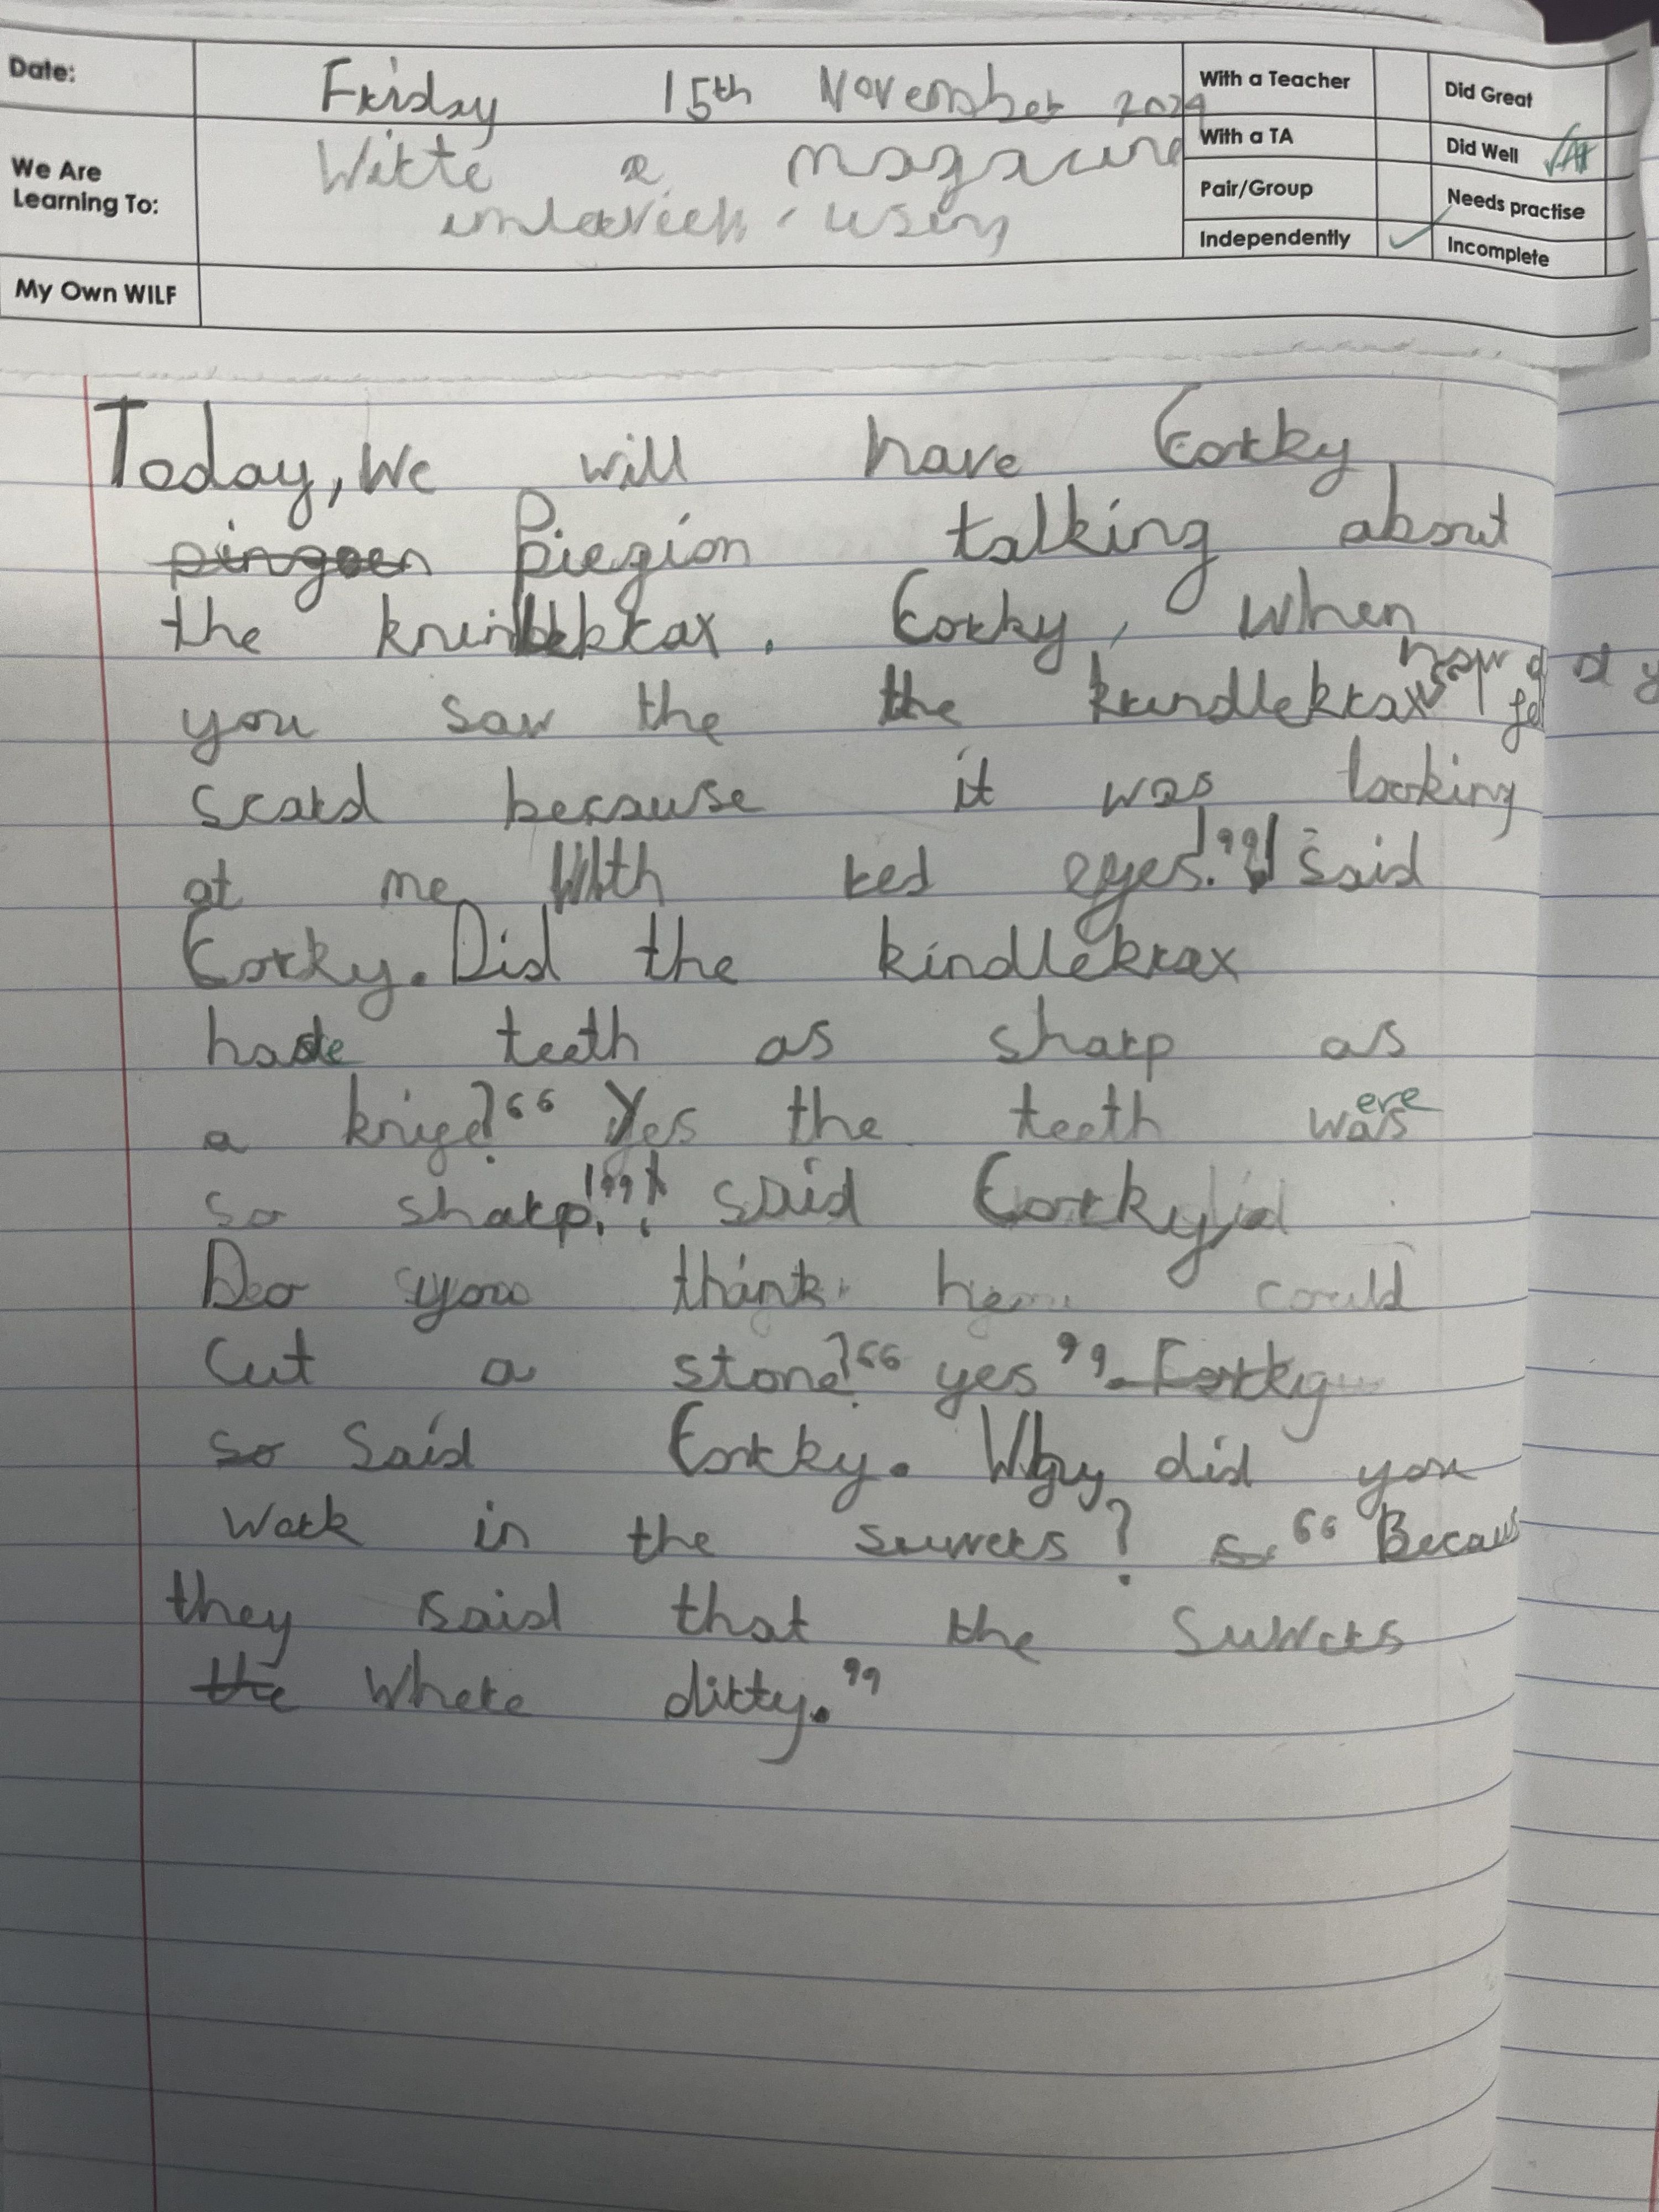 Date:
Friday 15th November 2024
With a Teacher
Did Great
We Are
Learning To:
Write a magazine
using
With a TA
Did Well
Pair/Group
Needs practise
Independently
Incomplete
My Own WILF
Today, We will have Corky
pingoen Piegion talking about
the . Corky, When
you saw the the krindlekrax how did y
scard because it was looking
at me With red eyes.!" said
Corky. Did the kindlekrax
have teeth as sharp as
a knife? " Yes the teeth was ere
so sharp!" said Corky
Do you think he could
cut a stone? " yes ". Corky
so said Corky. Why did you
work in the suwers? s. " Becaus
they said that the suwers
the where dirty."